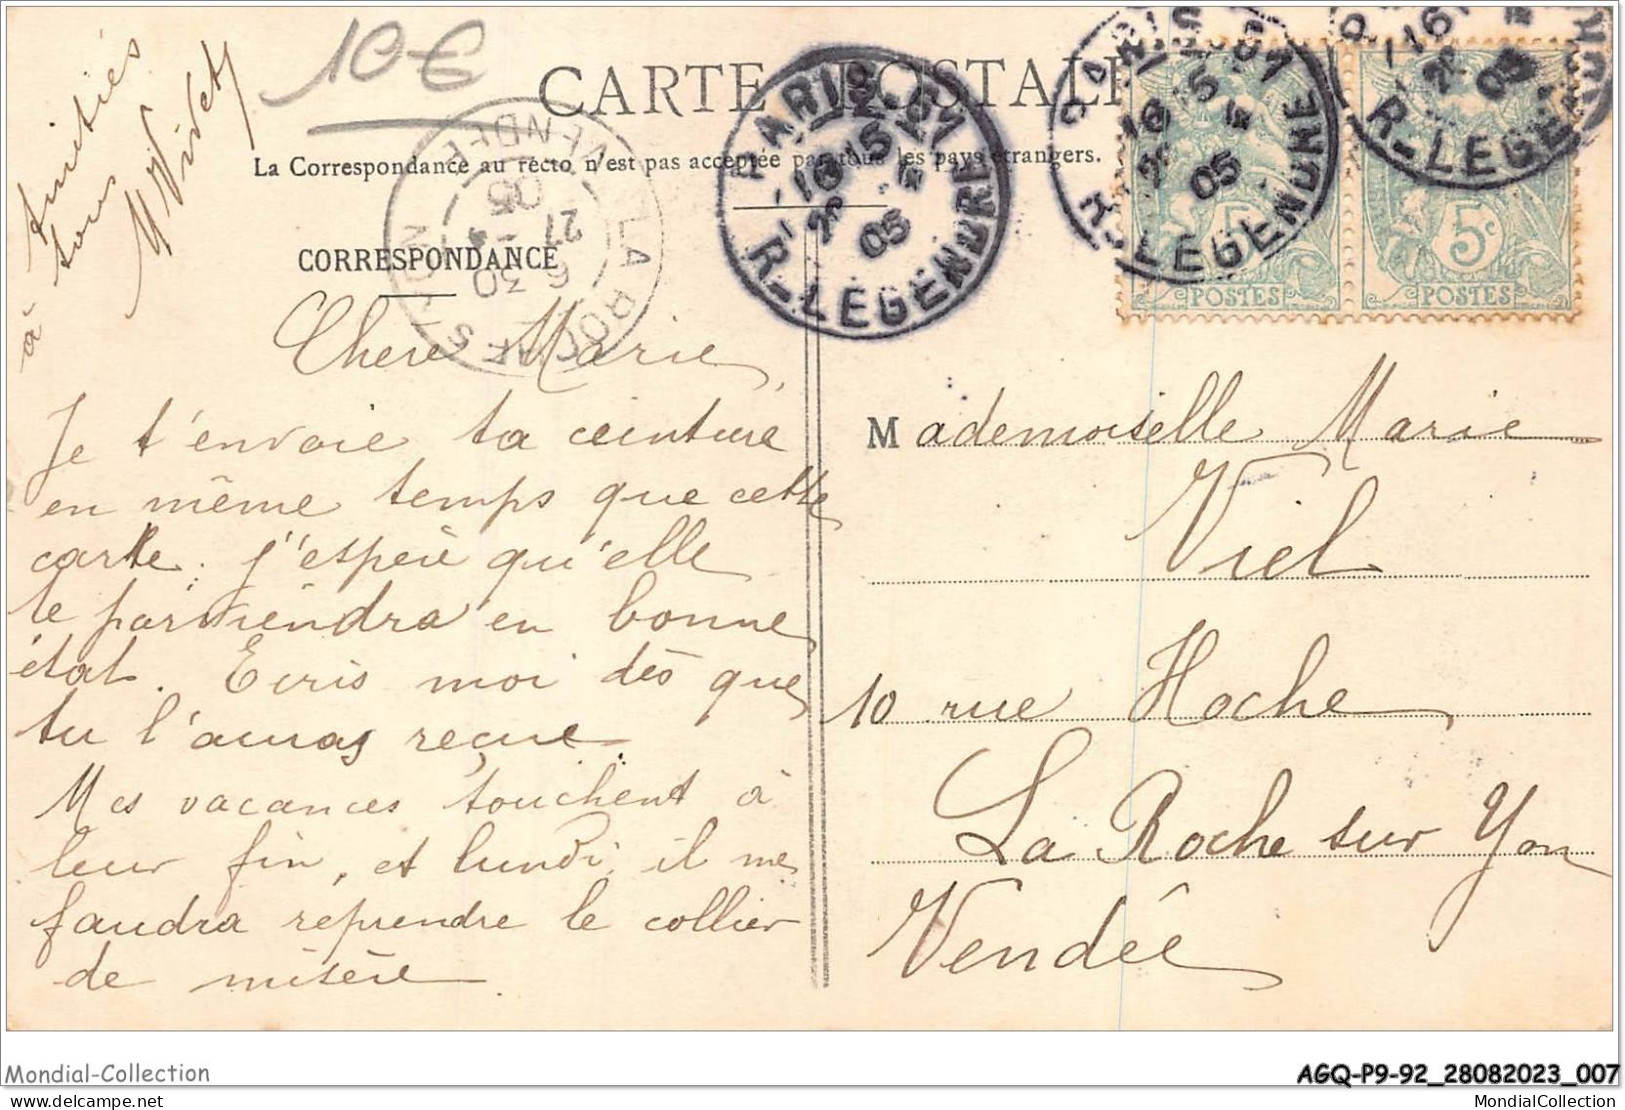 10 €
CARTE POSTALE
La Correspondance au recto n'est pas acceptée par tous les pays étrangers.
CORRESPONDANCE
Amitiés
à tous
M Vivet
Chère Marie,
Je t'envoie ta ceinture
en même temps que cette
carte. j'espère qu'elle
te parviendra en bonne
état. Ecris moi dès que
tu l'auras reçue.
Mes vacances touchent à
leur fin, et lundi il me
faudra reprendre le collier
de misère.
PARIS
16 15
05
R. LEGENDRE
PARIS
16 15
05
R. LEGENDRE
16
05
R. LEGEN
LA ROCHE S YON
VENDÉE
6 30
27
05
5c
POSTES
5c
POSTES
Mademoiselle Marie
Viel
10 rue Hoche
La Roche sur Yon
Vendée
Mondial-Collection
AGQ-P9-92_28082023_007
delcampe.net
MondialCollection